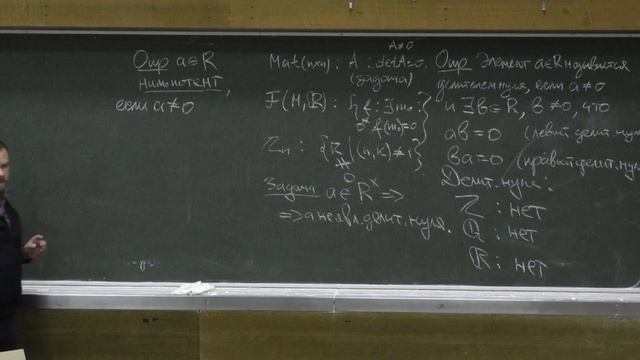 Опр a∈R
нильпотент,
если a≠0
A≠0
Mat(n×n): A: det A=0.
(задача)
F(M,ℝ): {f: ∃m₀: f(m₀)=0}
≠0
ℤₙ: {k | (n,k)≠1}
≠0
Задача a∈R^× ⇒
⇒ a не явл. делит. нуля.
Опр Элемент a∈R называется
делителем нуля, если a≠0
и ∃b∈R, b≠0, что
ab=0 (левый делит. нуля
ba=0 (правый делит. нуля
Делит. нуля:
ℤ: нет
ℚ: нет
ℝ: нет